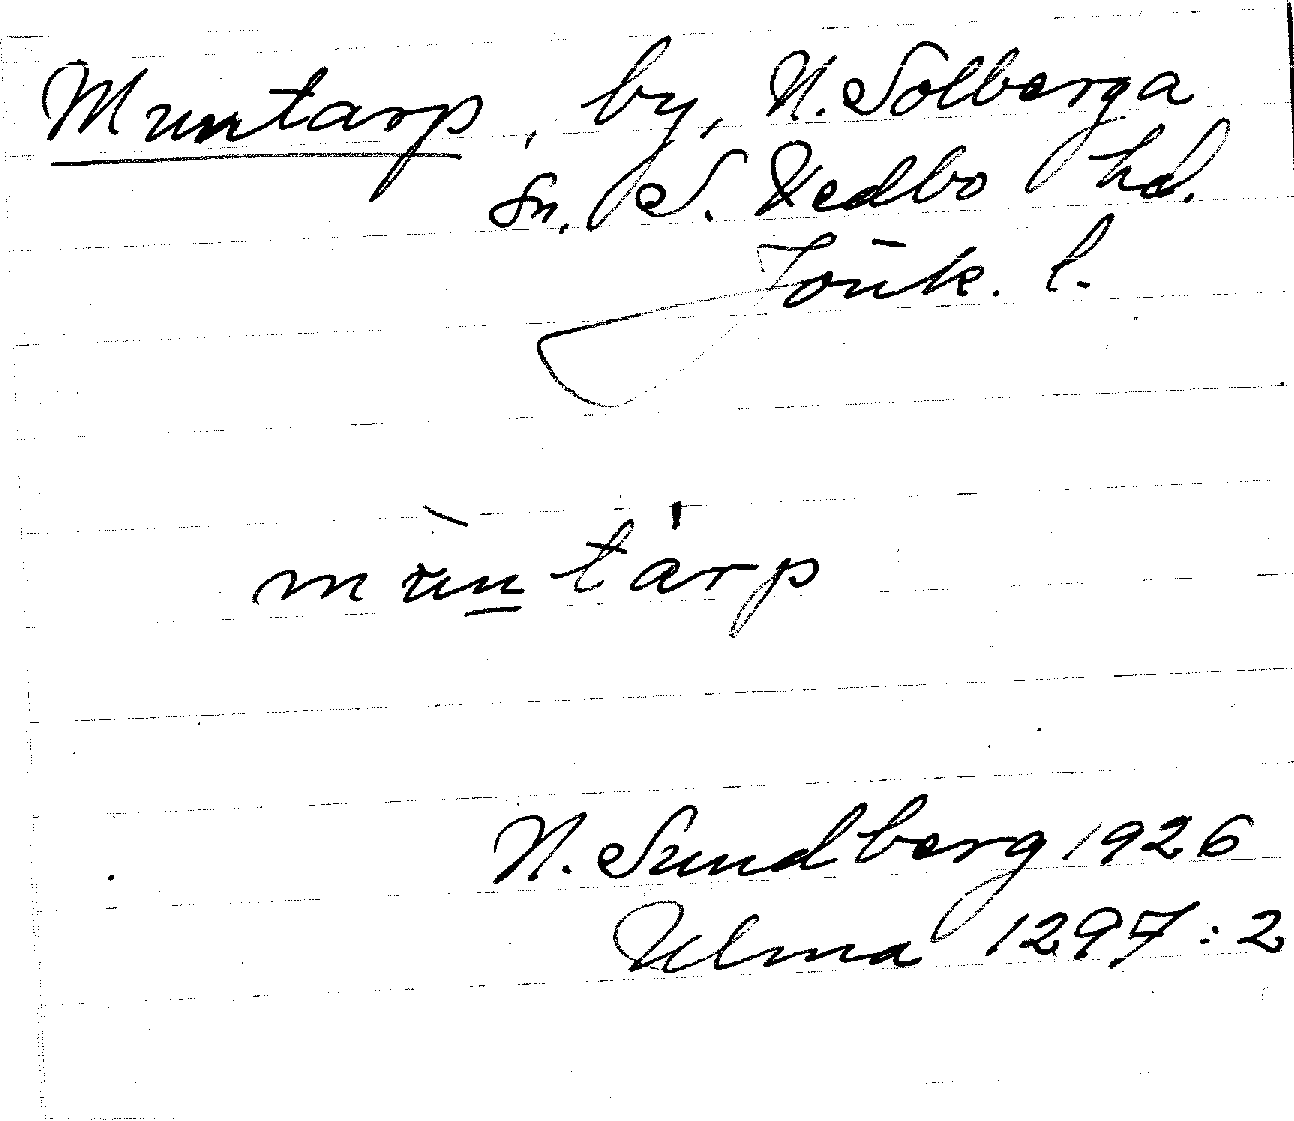 Muntarp, by, N. Solberga
sn. S. Vedbo hd.
Jönk. l.
mùntárp
N. Sundberg 1926
Ulma 1297:2